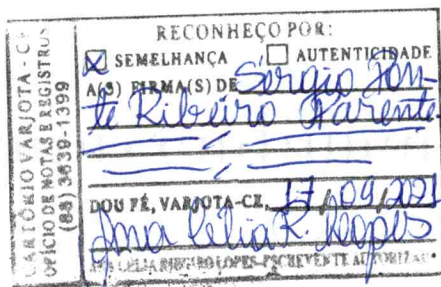 CARTÓRIO VARJOTA - CE
OFÍCIO DE NOTAS E REGISTROS
(88) 3639-1399
RECONHEÇO POR:
X SEMELHANÇA AUTENTICIDADE
A(S) FIRMA(S) DE Sérgio Fon-
te Ribeiro Parente
DOU FÉ, VARJOTA-CE, 17/09/2021
Ana Célia R. Lopes
ANA CELIA RIBEIRO LOPES-ESCREVENTE AUTORIZADA